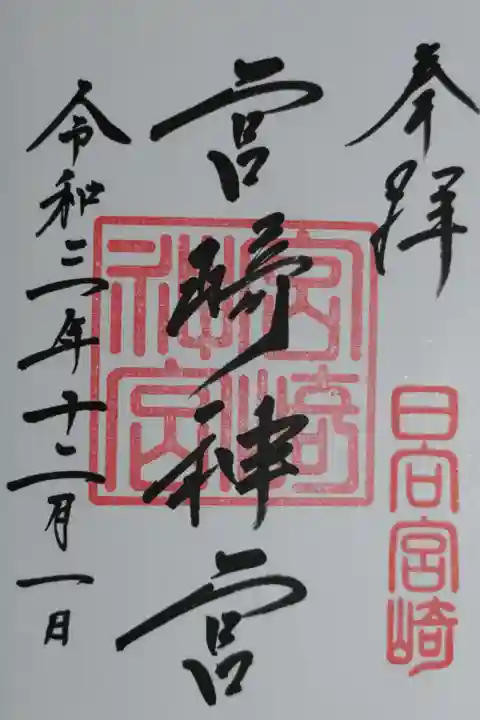 奉拝
日向宮崎
宮崎神宮
宮崎
神宮
令和三年十二月一日